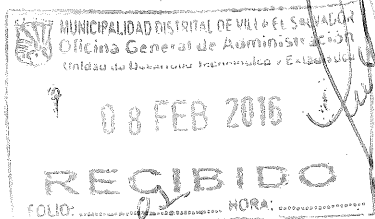 MUNICIPALIDAD DISTRITAL DE VILLA EL SALVADOR
Oficina General de Administración
Unidad de Desarrollo Tecnológico y Estadística
08 FEB 2016
RECIBIDO
FOLIO: 01 HORA: